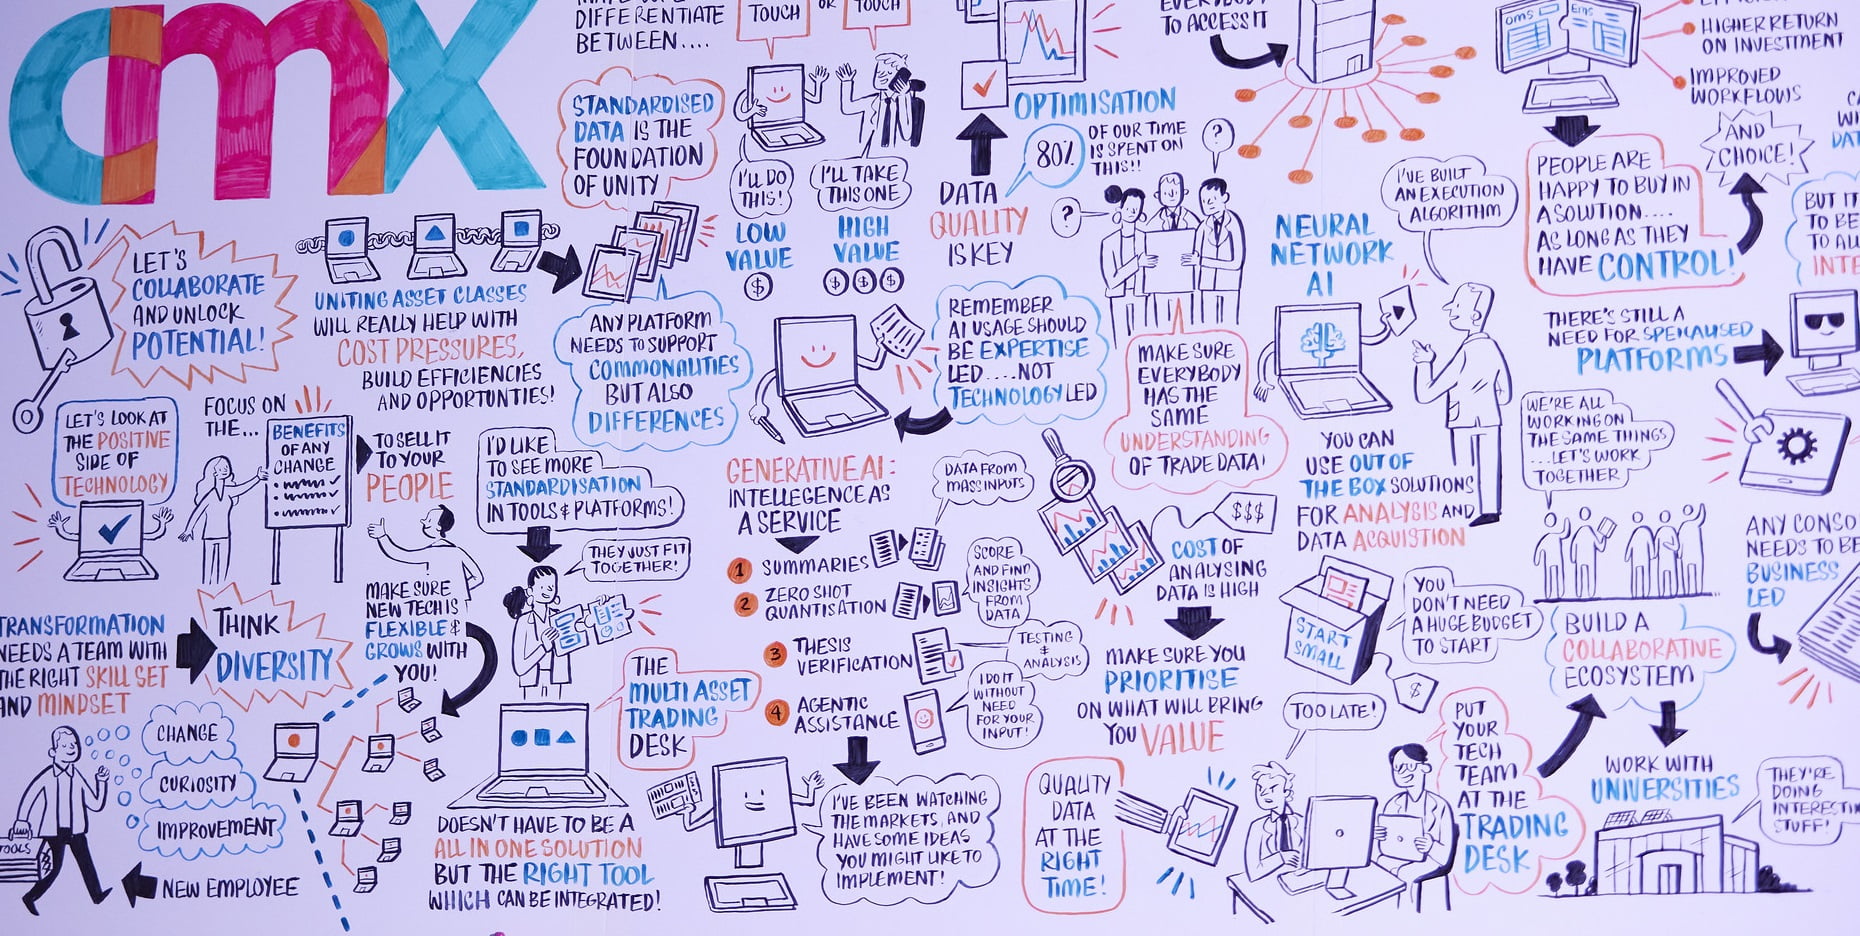 cmx
DIFFERENTIATE
BETWEEN....
TOUCH
OR
TOUCH
STANDARDISED
DATA IS THE
FOUNDATION
OF UNITY
I'LL DO
THIS!
I'LL TAKE
THIS ONE
LOW
VALUE
$
HIGH
VALUE
$ $ $
OPTIMISATION
80%
OF OUR TIME
IS SPENT ON
THIS!!
?
?
DATA
QUALITY
IS KEY
EVERYBODY
TO ACCESS IT
OMS
EMS
HIGHER RETURN
ON INVESTMENT
IMPROVED
WORKFLOWS
AND
CHOICE!
PEOPLE ARE
HAPPY TO BUY IN
A SOLUTION....
AS LONG AS THEY
HAVE CONTROL!
BUT IT
TO BE
TO AL
INTE
LET'S
COLLABORATE
AND UNLOCK
POTENTIAL!
UNITING ASSET CLASSES
WILL REALLY HELP WITH
COST PRESSURES,
BUILD EFFICIENCIES
AND OPPORTUNTIES!
ANY PLATFORM
NEEDS TO SUPPORT
COMMONALITIES
BUT ALSO
DIFFERENCES
REMEMBER
AI USAGE SHOULD
BE EXPERTISE
LED....NOT
TECHNOLOGY LED
MAKE SURE
EVERYBODY
HAS THE
SAME
UNDERSTANDING
OF TRADE DATA!
NEURAL
NETWORK
AI
I'VE BUILT
AN EXECUTION
ALGORITHM
YOU CAN
USE OUT OF
THE BOX SOLUTIONS
FOR ANALYSIS AND
DATA ACQUISTION
THERE'S STILL A
NEED FOR SPECIALISED
PLATFORMS
WE'RE ALL
WORKING ON
THE SAME THINGS
...LET'S WORK
TOGETHER
LET'S LOOK AT
THE POSITIVE
SIDE OF
TECHNOLOGY
FOCUS ON
THE...
BENEFITS
OF ANY
CHANGE
TO SELL IT
TO YOUR
PEOPLE
I'D LIKE
TO SEE MORE
STANDARDISATION
IN TOOLS & PLATFORMS!
THEY JUST FIT
TOGETHER!
GENERATIVE AI:
INTELLEGENCE AS
A SERVICE
DATA FROM
MASS INPUTS
1 SUMMARIES
2 ZERO SHOT
QUANTISATION
SCORE
AND FIND
INSIGHTS
FROM
DATA
3 THESIS
VERIFICATION
TESTING
&
ANALYSIS
4 AGENTIC
ASSISTANCE
I DO IT
WITHOUT
NEED
FOR YOUR
INPUT!
$$$
COST OF
ANALYSING
DATA IS HIGH
MAKE SURE YOU
PRIORITISE
ON WHAT WILL BRING
YOU VALUE
START
SMALL
$
YOU
DON'T NEED
A HUGE BUDGET
TO START
BUILD A
COLLABORATIVE
ECOSYSTEM
ANY CONSO
NEEDS TO BE
BUSINESS
LED
TRANSFORMATION
NEEDS A TEAM WITH
THE RIGHT SKILL SET
AND MINDSET
THINK
DIVERSITY
MAKE SURE
NEW TECH IS
FLEXIBLE &
GROWS WITH
YOU!
CHANGE
CURIOSITY
IMPROVEMENT
TOOLS
NEW EMPLOYEE
THE
MULTI ASSET
TRADING
DESK
DOESN'T HAVE TO BE A
ALL IN ONE SOLUTION
BUT THE RIGHT TOOL
WHICH CAN BE INTEGRATED!
I'VE BEEN WATCHING
THE MARKETS, AND
HAVE SOME IDEAS
YOU MIGHT LIKE TO
IMPLEMENT!
QUALITY
DATA
AT THE
RIGHT
TIME!
TOO LATE!
PUT
YOUR
TECH
TEAM
AT THE
TRADING
DESK
WORK WITH
UNIVERSITIES
THEY'RE
DOING
STUFF!